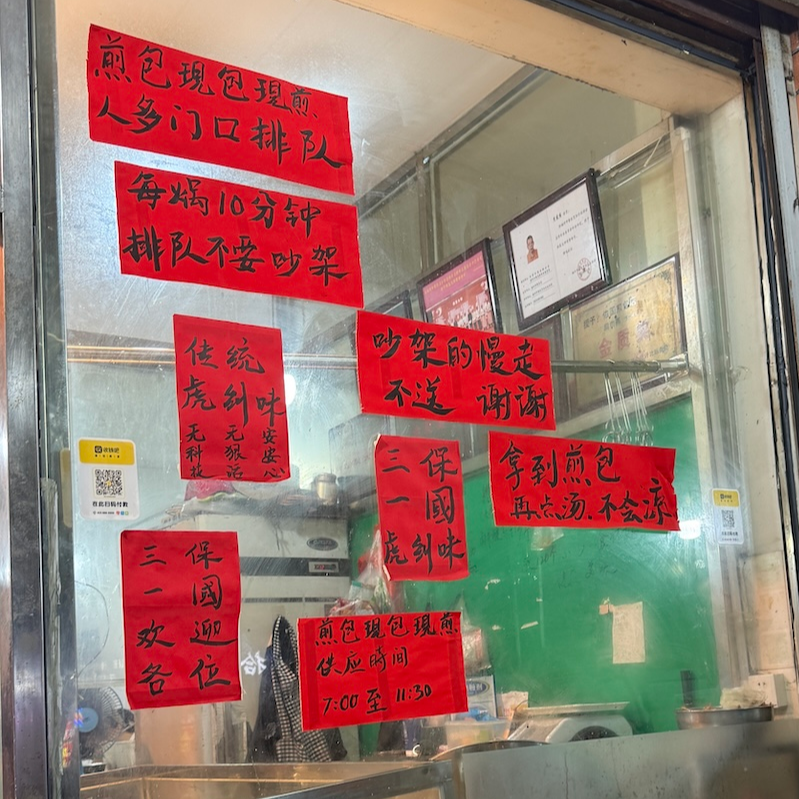 煎包現包現煎
人多门口排队
每煱10分钟
排队不要吵架
传统
虎剑味
无科技
无狠活
安安心
吵架的慢走
不送 谢谢
三 保
一 國
虎剑味
拿到煎包
再点汤.不会凉
三 保
一 國
欢 迎
各 位
煎包現包現煎
供应時间
7:00至11:30
收钱吧
在此扫码付款